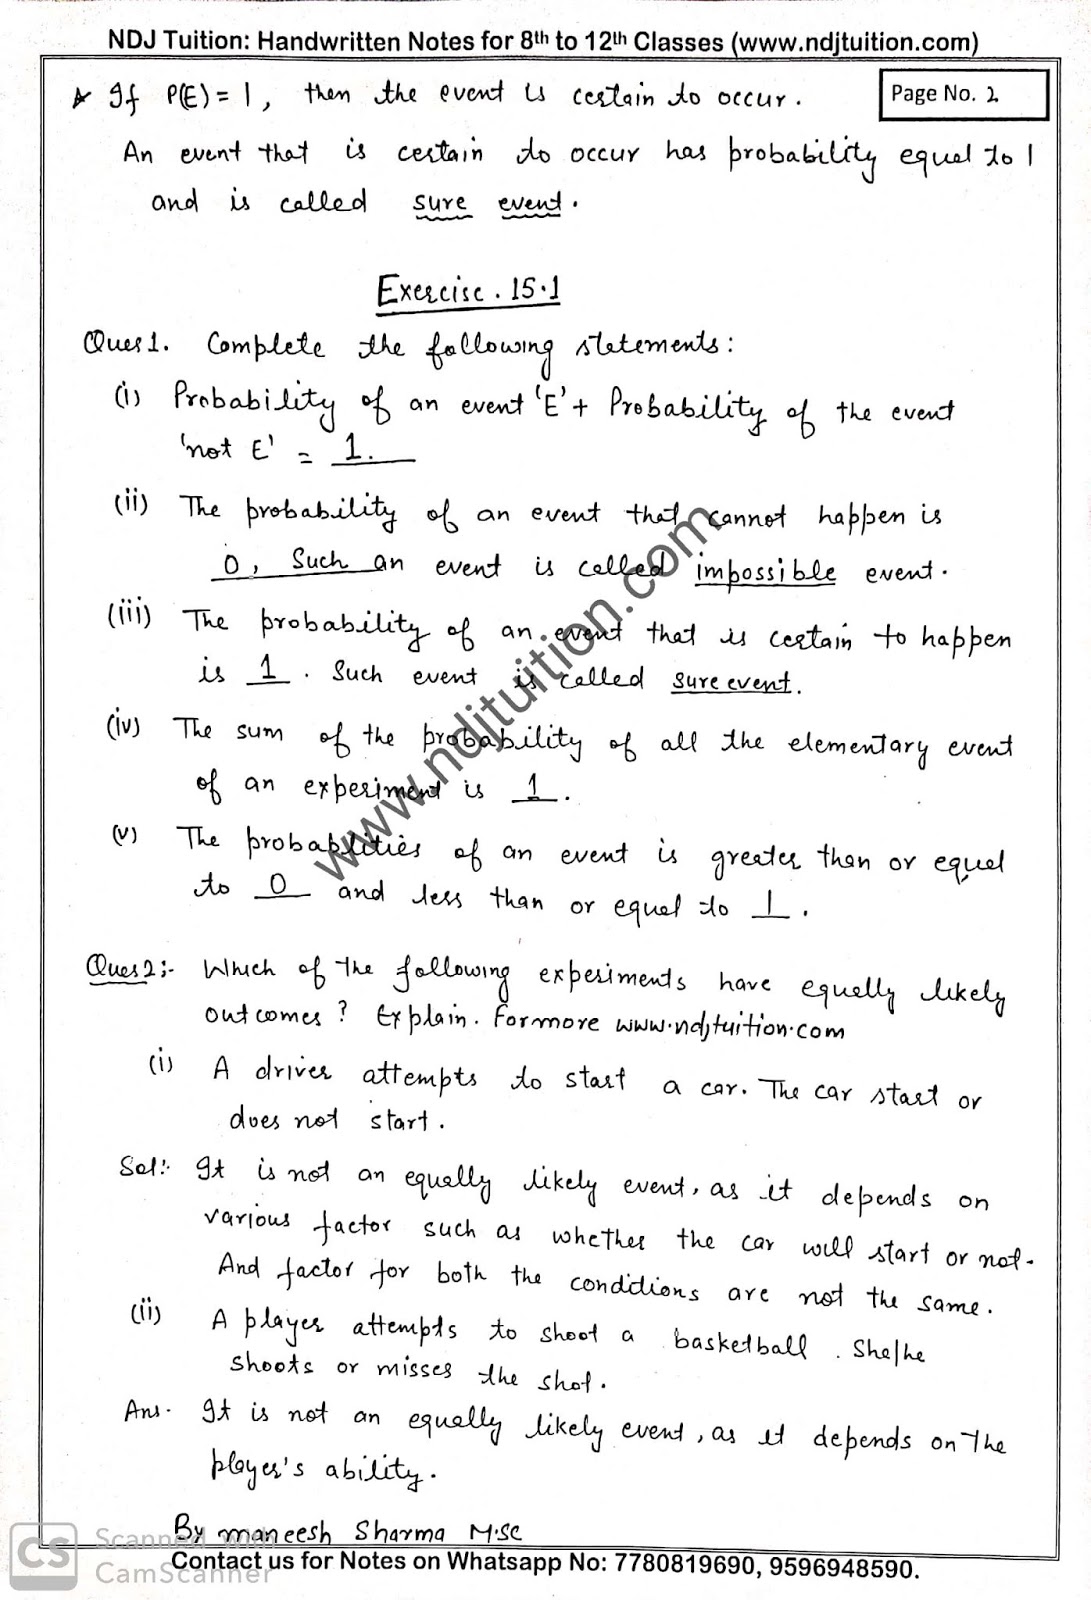 NDJ Tuition: Handwritten Notes for 8th to 12th Classes (www.ndjtuition.com)
Page No. 2
★ If P(E) = 1, then the event is certain to occur.
An event that is certain to occur has probability equal to 1
and is called sure event.
Exercise. 15.1
Ques 1. Complete the following statements:
(i) Probability of an event 'E' + Probability of the event
'not E' = 1.
(ii) The probability of an event that cannot happen is
0, Such an event is called impossible event.
(iii) The probability of an event that is certain to happen
is 1. Such event is called sure event.
(iv) The sum of the probability of all the elementary event
of an experiment is 1.
(v) The probabilities of an event is greater than or equal
to 0 and less than or equal to 1.
www.ndjtuition.com
Ques 2:- Which of the following experiments have equally likely
outcomes? Explain. For more www.ndjtuition.com
(i) A driver attempts to start a car. The car start or
does not start.
Sol:- It is not an equally likely event, as it depends on
various factor such as whether the car will start or not.
And factor for both the conditions are not the same.
(ii) A player attempts to shoot a basketball. She/he
shoots or misses the shot.
Ans. It is not an equally likely event, as it depends on the
player's ability.
By maneesh Sharma M.Sc
CS Scanned with
CamScanner
Contact us for Notes on Whatsapp No: 7780819690, 9596948590.